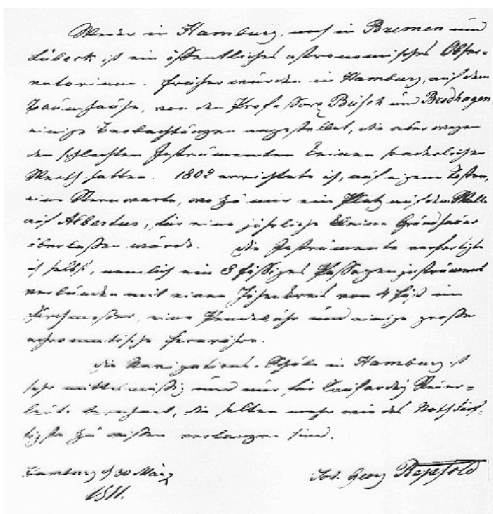 Weder in Hamburg, noch in Bremen und
Lübeck ist ein öffentliches astronomisches Obser-
vatorium. Früher wurden in Hamburg, auf dem
Baumhause, von den Professoren Büsch und Brodhagen
einige Beobachtungen angestellt, die aber wegen
den schlechten Instrumenten keinen sonderlichen
Werth hatten. 1802 errichtete ich, auf eigene Kosten,
eine Sternwarte, wozu mir ein Platz auf dem Walle
auf Albertus, für eine jährliche kleine Grundhäuer
überlassen wurde. Die Instrumente verfertigte
ich selbst, nemlich ein 8 füssiges Passagen instrument
verbunden mit einen Höhenkreis von 4 Fuß im
Durchmesser, eine Pendeluhr und einige große
achromatische Fernröhre.
Die Navigations-Schule in Hamburg ist
sehr mittelmässig und nur für
die selten mehr wie das Nothdürf-
tigste zu wissen verlangen sind.
Hamburg d 30 März
1811.
Joh. Georg Repsold